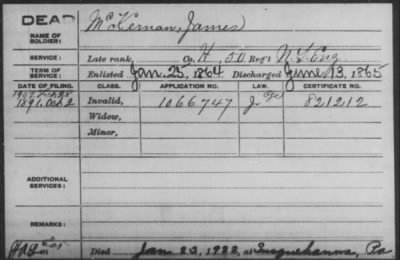 DEAD
NAME OF SOLDIER: McKernan, James
SERVICE: Late rank, Co. H, 50 Reg't N.Y. Eng
TERM OF SERVICE: Enlisted Jan. 25, 1864 Discharged June 13, 1865
DATE OF FILING. CLASS. APPLICATION NO. LAW. CERTIFICATE NO.
1891. Oct 2 Invalid, 1066747 821212
Widow,
Minor,
ADDITIONAL SERVICES:
REMARKS:
Died Jan. 23, 1922, at Susquehanna, Pa